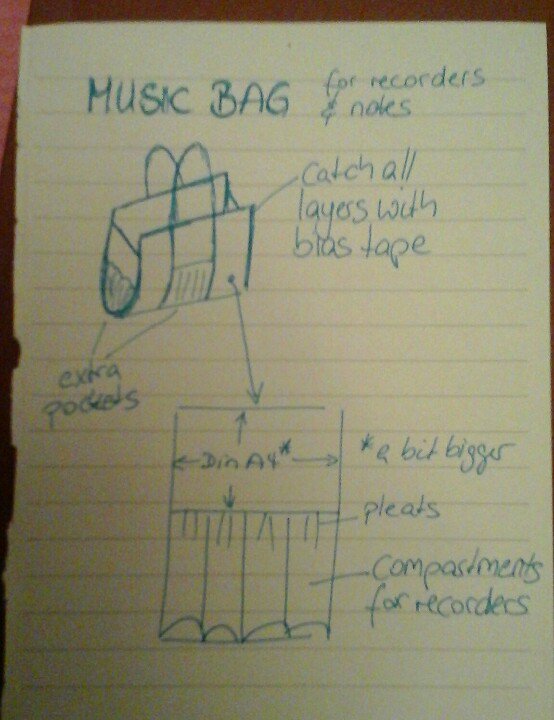 MUSIC BAG for recorders
& notes
Catch all
layers with
bias tape
extra
pockets
Din A4*
*a bit bigger
pleats
Compartments
for recorders